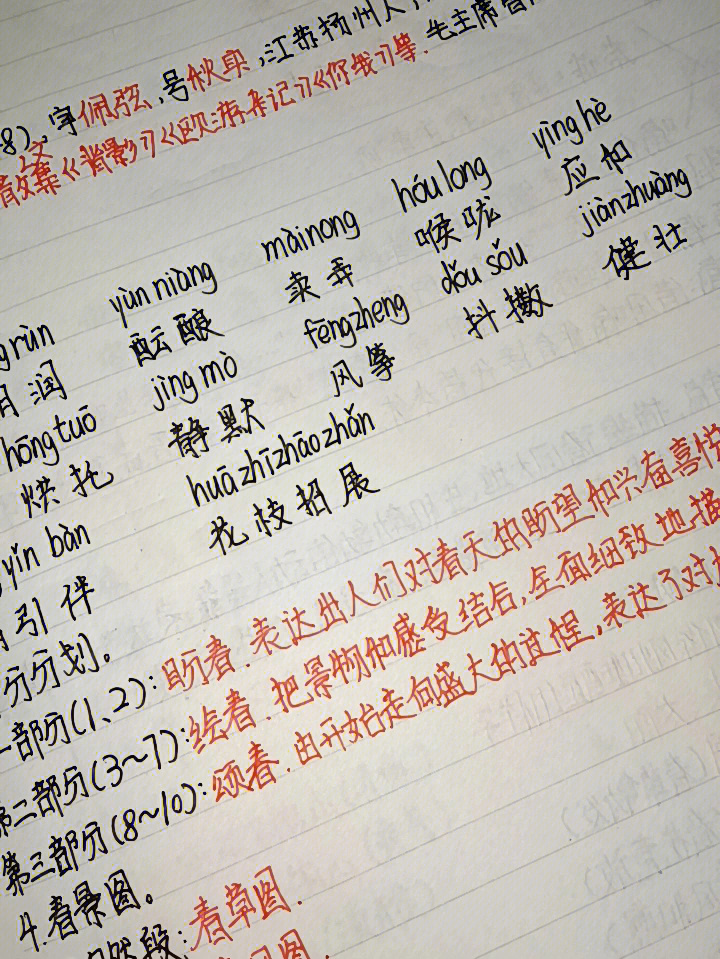 8),字佩弦,号秋实,江苏扬州人,
散文集《背影》《欧游杂记》《你我》等.毛主席曾
yùn niàng màinong hóulong yìng hè
rùn 酝酿 卖弄 喉咙 应和
润 jìng mò fēngzheng dǒu sǒu jiànzhuàng
hōng tuō 静默 风筝 抖擞 健壮
烘托 huāzhīzhāozhǎn
yǐn bàn 花枝招展
引伴
分划。
部分(1、2):盼春.表达出人们对春天的盼望和兴奋喜悦
第二部分(3~7):绘春.把景物和感受结后,全面细致地描
第三部分(8~10):颂春.由开始走向盛大的过程,表达了对
4.春景图。
然段:春草图.
图.